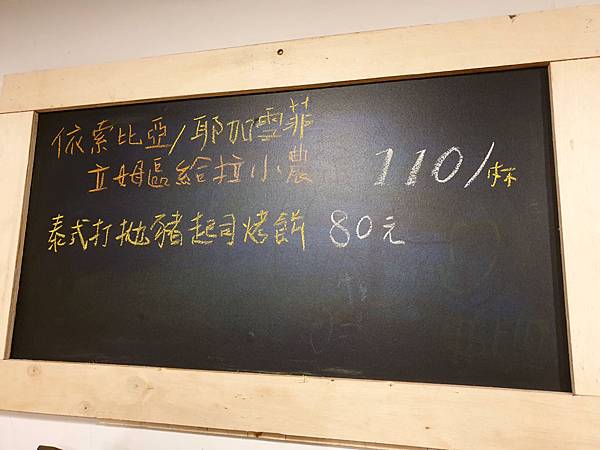 依索比亞/耶加雪菲
立姆區給拉小農 110/杯
泰式打拋豬起司烤餅 80元